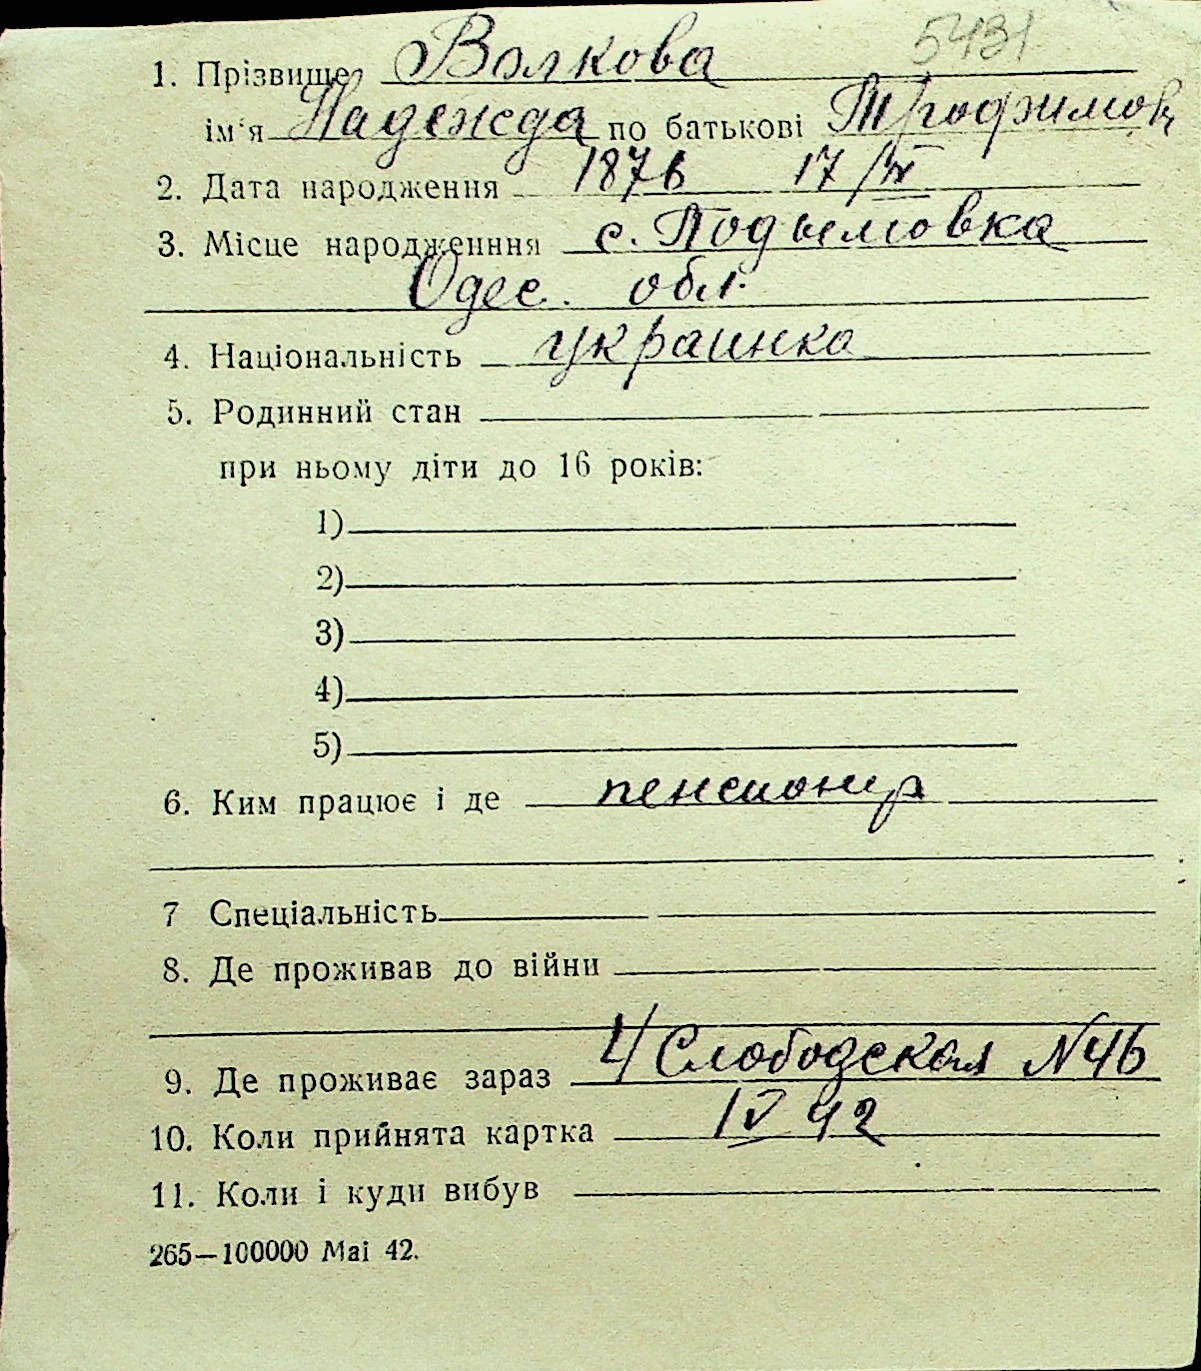 5431
1. Прізвище Волкова
ім'я Надежда по батькові Трофимов
2. Дата народження 1876 17/IV
3. Місце народженння с. Подымовка
Одес. обл.
4. Національність украинка
5. Родинний стан
при ньому діти до 16 років:
1)
2)
3)
4)
5)
6. Ким працює і де пенсионер
7 Спеціальність
8. Де проживав до війни
9. Де проживає зараз 4 Слободская N 46
10. Коли прийнята картка IV 42
11. Коли і куди вибув
265—100000 Маі 42.